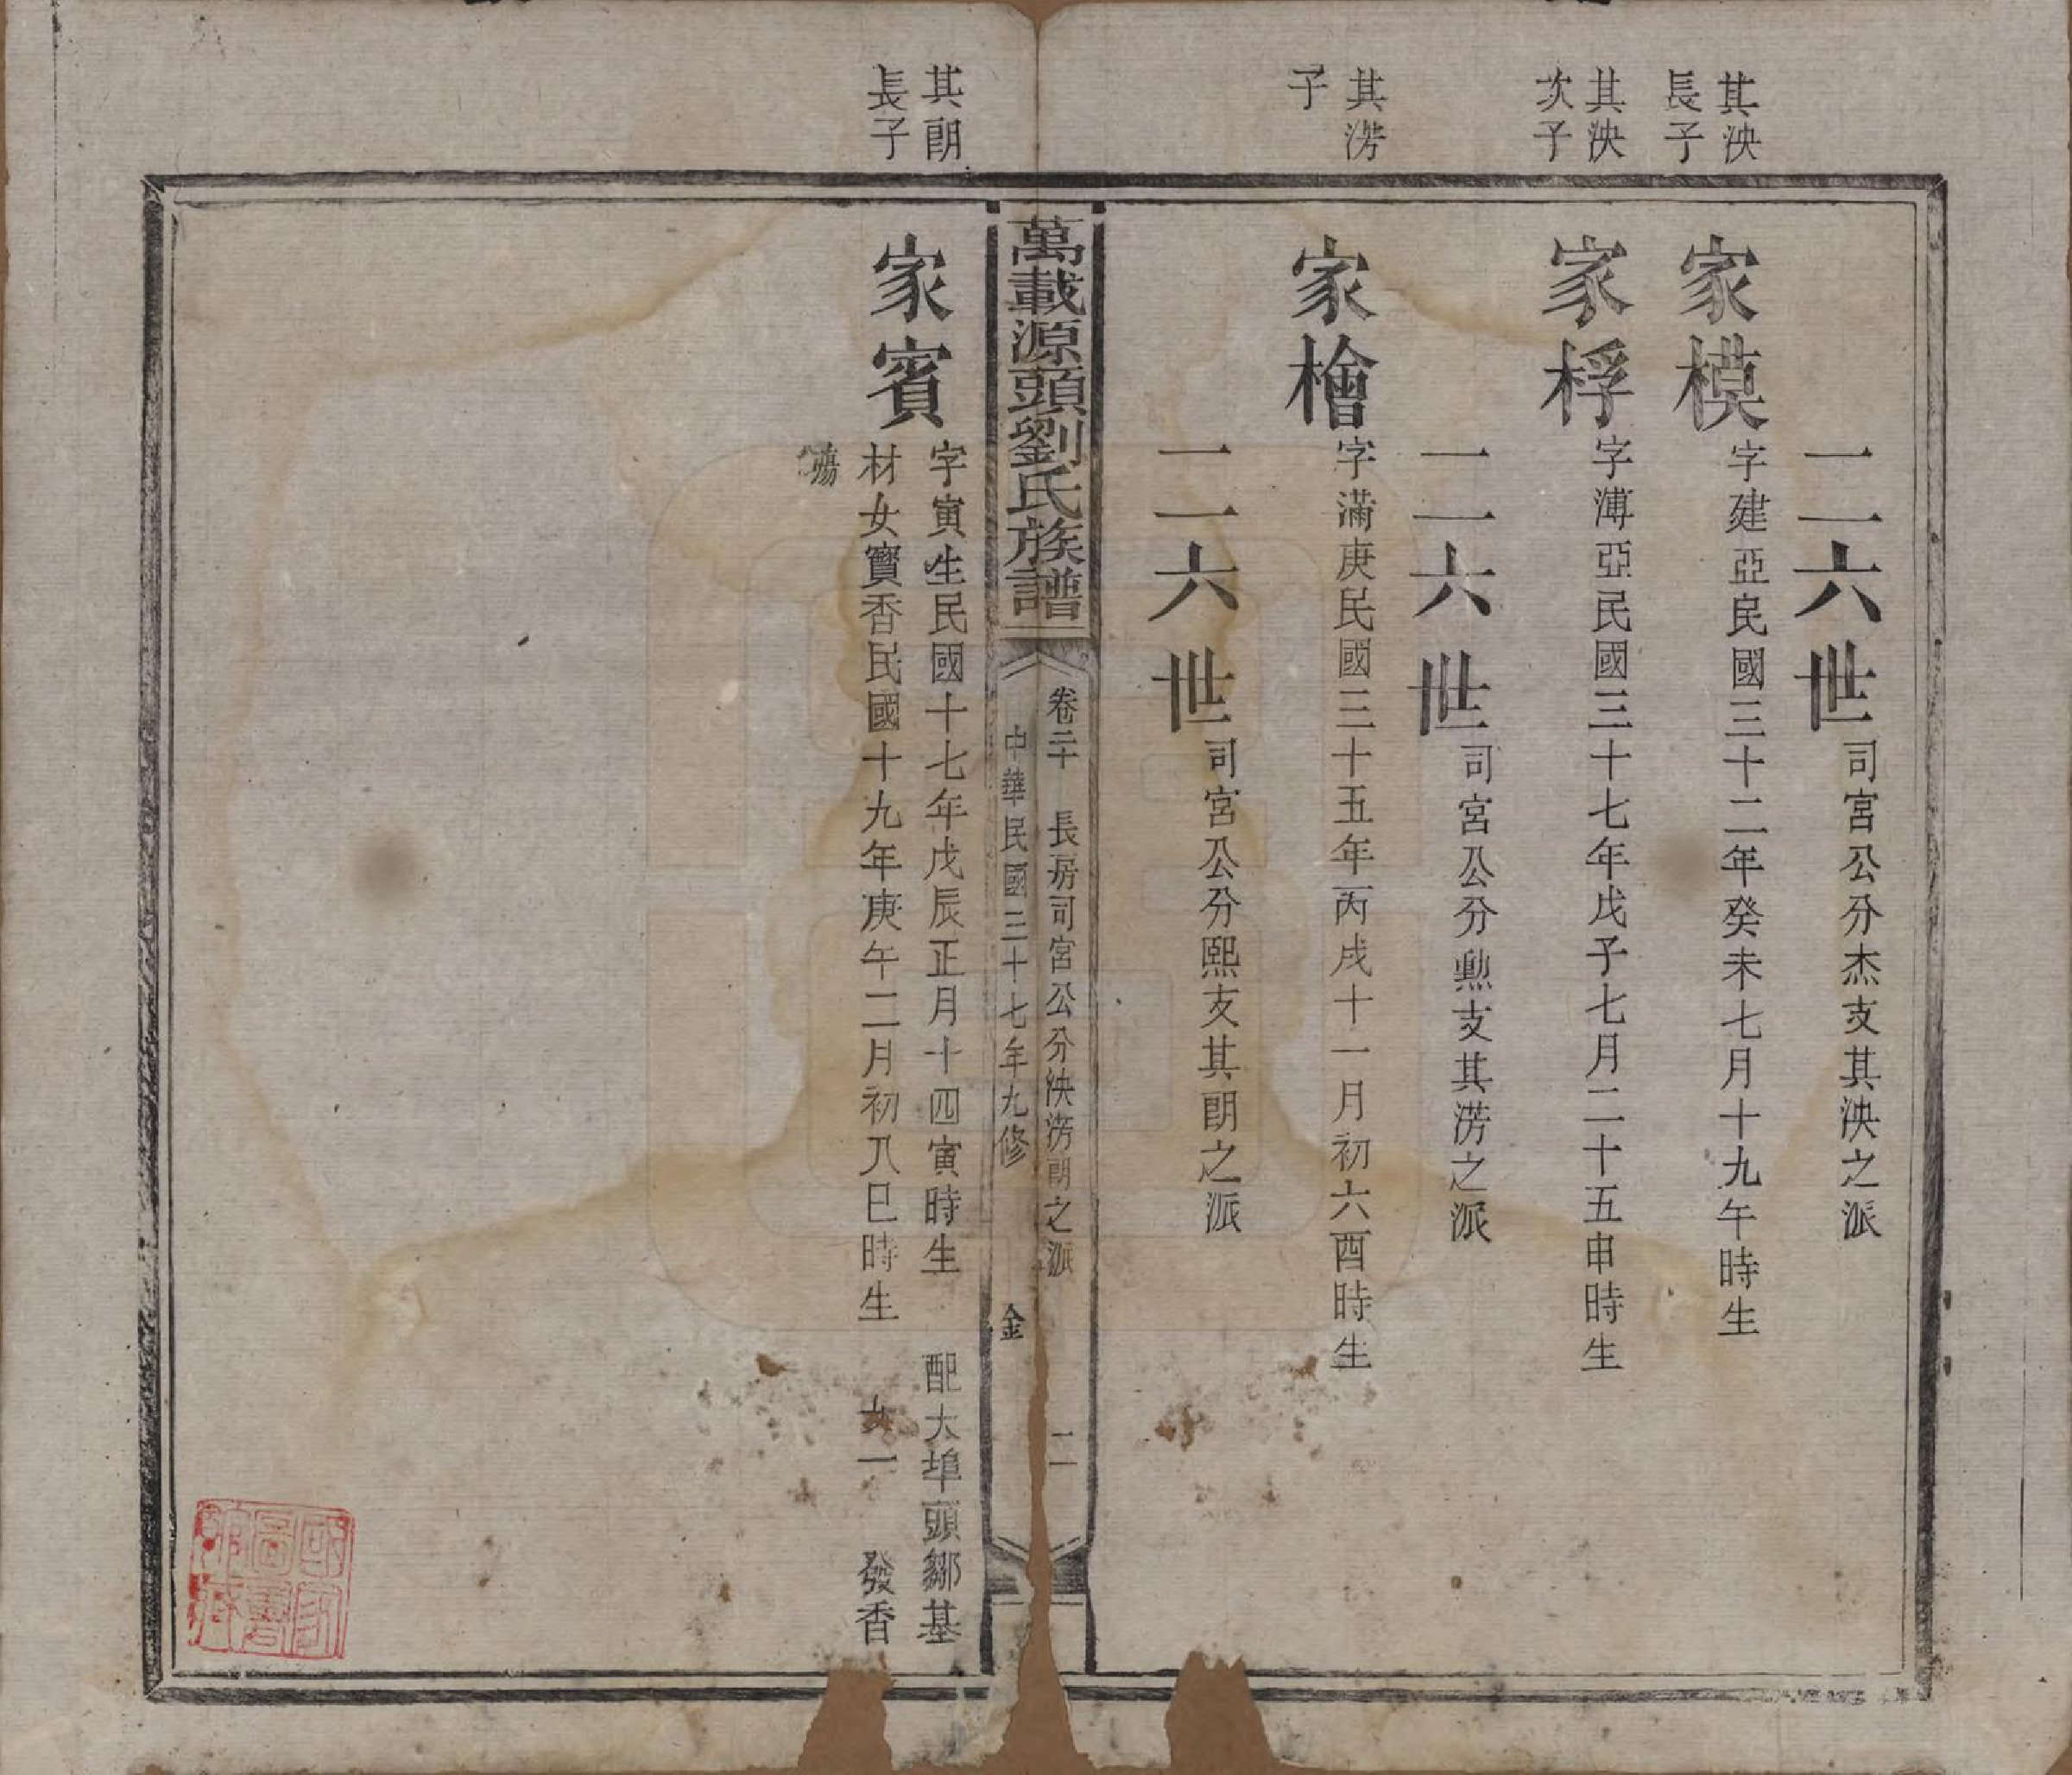 二六世司宮公分杰支其泱之派
其泱
長子
家模字建亞民國三十二年癸未七月十九午時生
其泱
次子
家桴字溥亞民國三十七年戊子七月二十五申時生
二六世司宮公分勲支其滂之派
其滂
子
家檜字滿庚民國三十五年丙戌十一月初六酉時生
二六世司宮公分熙支其朗之派
萬載源頭劉氏族譜
卷二十 長房司宮公分泱滂朗之派 二
中華民國三十七年九修 金
其朗
長子
家賓字寅生民國十七年戊辰正月十四寅時生 配大埠頭鄒基
材女寳香民國十九年庚午二月初八巳時生 女一 發香
殤
國家
圖書
館藏